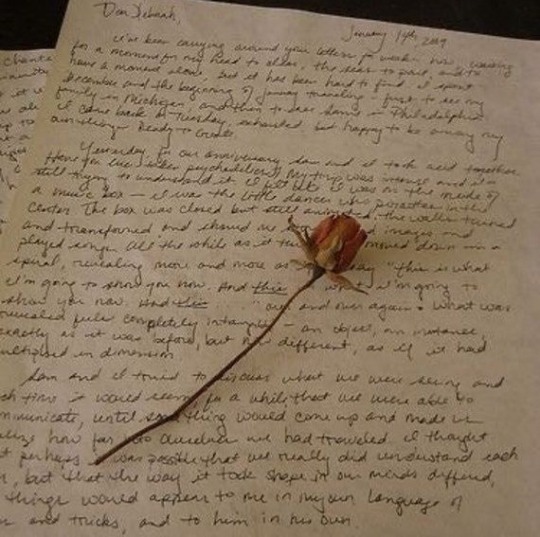 Dear Deborah,
January 14th, 2009
I've been carrying around your letters for weeks now, waiting
for a moment for my head to clear, the seas to part, and to
have a moment alone, but it has been hard to find. I spent
December and the beginning of January traveling - first to see my
family in Michigan, and then to see Sam's in Philadelphia.
I came back on Tuesday, exhausted but happy to be among my
own things. Ready to create.
Yesterday, for our anniversary, Sam and I took acid together.
Have you ever taken psychedelics? My trip was intense and I'm
still trying to understand it. I felt like I was on the inside of
a music box - I was the little dancer who pirouettes in the
center. The box was closed but still animated, the walls turned
and transformed and showed me images and
played songs. All the while as it moved down in a
spiral, revealing more and more as say "this is what
I'm going to show you now. And this is what I'm going to
show you now. And this " over and over again. What was
revealed felt completely - an object, an instance,
exactly as it was before, but now different, as if it had
multiplied in dimension.
Sam and I tried to discuss what we were seeing and
each time it would seem for a while that we were able to
communicate, until something would come up and made us
realize how far into ourselves we had traveled. I thought
that perhaps it was possible that we really did understand each
, but that the way it took shape in our minds differed,
things would appear to me in my own language of
and tricks, and to him in his own.